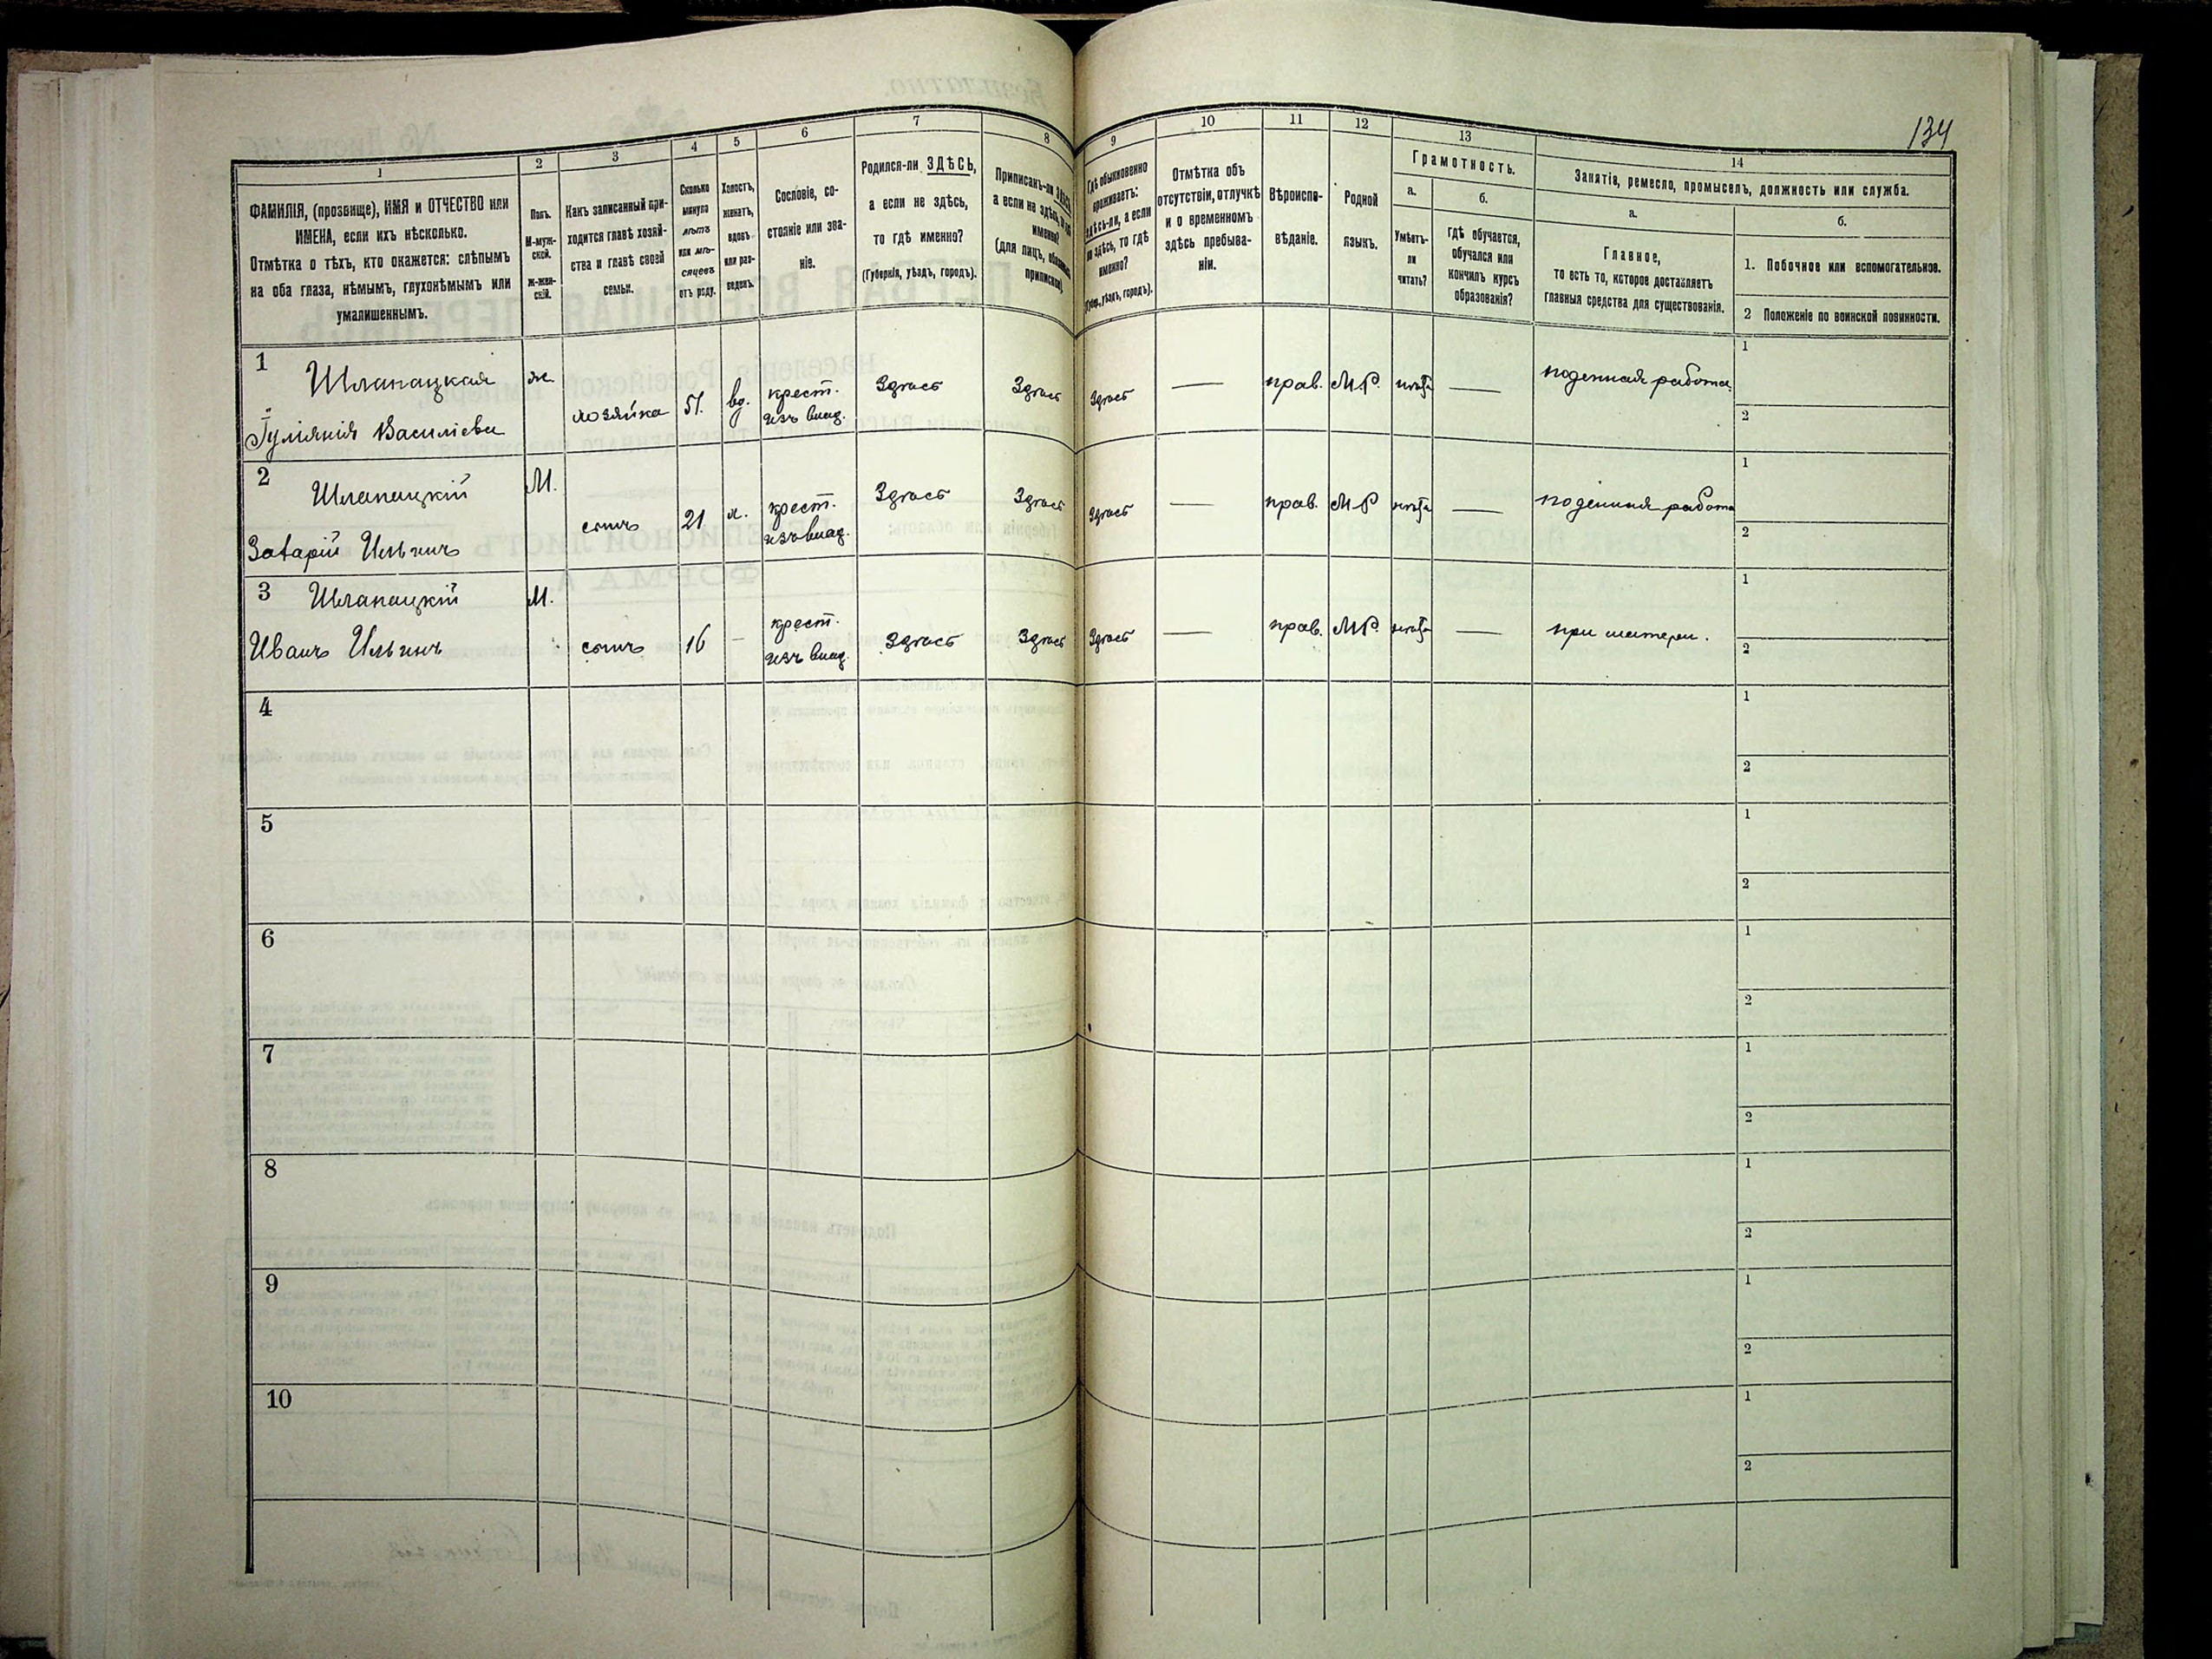 134
1
2
3
4
5
6
7
8
9
10
11
12
13
14
ФАМИЛІЯ, (прозвище), ИМЯ и ОТЧЕСТВО или
ИМЕНА, если ихъ нѣсколько.
Отмѣтка о тѣхъ, кто окажется: слѣпымъ
на оба глаза, нѣмымъ, глухонѣмымъ или
умалишеннымъ.
Полъ.
М-муж-
ской.
Ж-жен-
скій.
Какъ записанный при-
ходится главѣ хозяй-
ства и главѣ своей
семьи.
Сколько
минуло
лѣтъ
или мѣ-
сяцевъ
отъ роду.
Холостъ,
женатъ,
вдовъ
или раз-
веденъ.
Сословіе, со-
стояніе или зва-
ніе.
Родился-ли ЗДѢСЬ,
а если не здѣсь,
то гдѣ именно?
(Губернія, уѣздъ, городъ).
Приписанъ-ли ЗДѢСЬ,
а если не здѣсь, то гдѣ
именно?
(для лицъ, обязанныхъ
припиской)
Гдѣ обыкновенно
проживаетъ:
здѣсь-ли, а если
не здѣсь, то гдѣ
именно?
(Губер., уѣздъ, городъ).
Отмѣтка объ
отсутствіи, отлучкѣ
и о временномъ
здѣсь пребыва-
ніи.
Вѣроиспо-
вѣданіе.
Родной
языкъ.
Грамотность.
а.
Умѣетъ-
ли
читать?
б.
Гдѣ обучается,
обучался или
кончилъ курсъ
образованія?
Занятіе, ремесло, промыселъ, должность или служба.
а.
Главное,
то есть то, которое доставляетъ
главныя средства для существованія.
б.
1. Побочное или вспомогательное.
2 Положеніе по воинской повинности.
1
Шлапацкая
Василіева
ж.
хозяйка
51.
вд.
крест.
изъ влад.
Здѣсь
Здѣсь
Здѣсь
—
прав.
М.Р.
нѣтъ
—
поденная работа
1
2
2
Шлапацкій
Захарій Ильинъ
М.
сынъ
21
х.
крест.
изъ влад.
Здѣсь
Здѣсь
Здѣсь
—
прав.
М.Р
нѣтъ
—
поденная работа
1
2
3
Шлапацкій
Иванъ Ильинъ
М.
сынъ
16
—
крест.
изъ влад.
Здѣсь
Здѣсь
Здѣсь
—
прав.
М.Р.
нѣтъ
—
при матери.
1
2
4
1
2
5
1
2
6
1
2
7
1
2
8
1
2
9
1
2
10
1
2